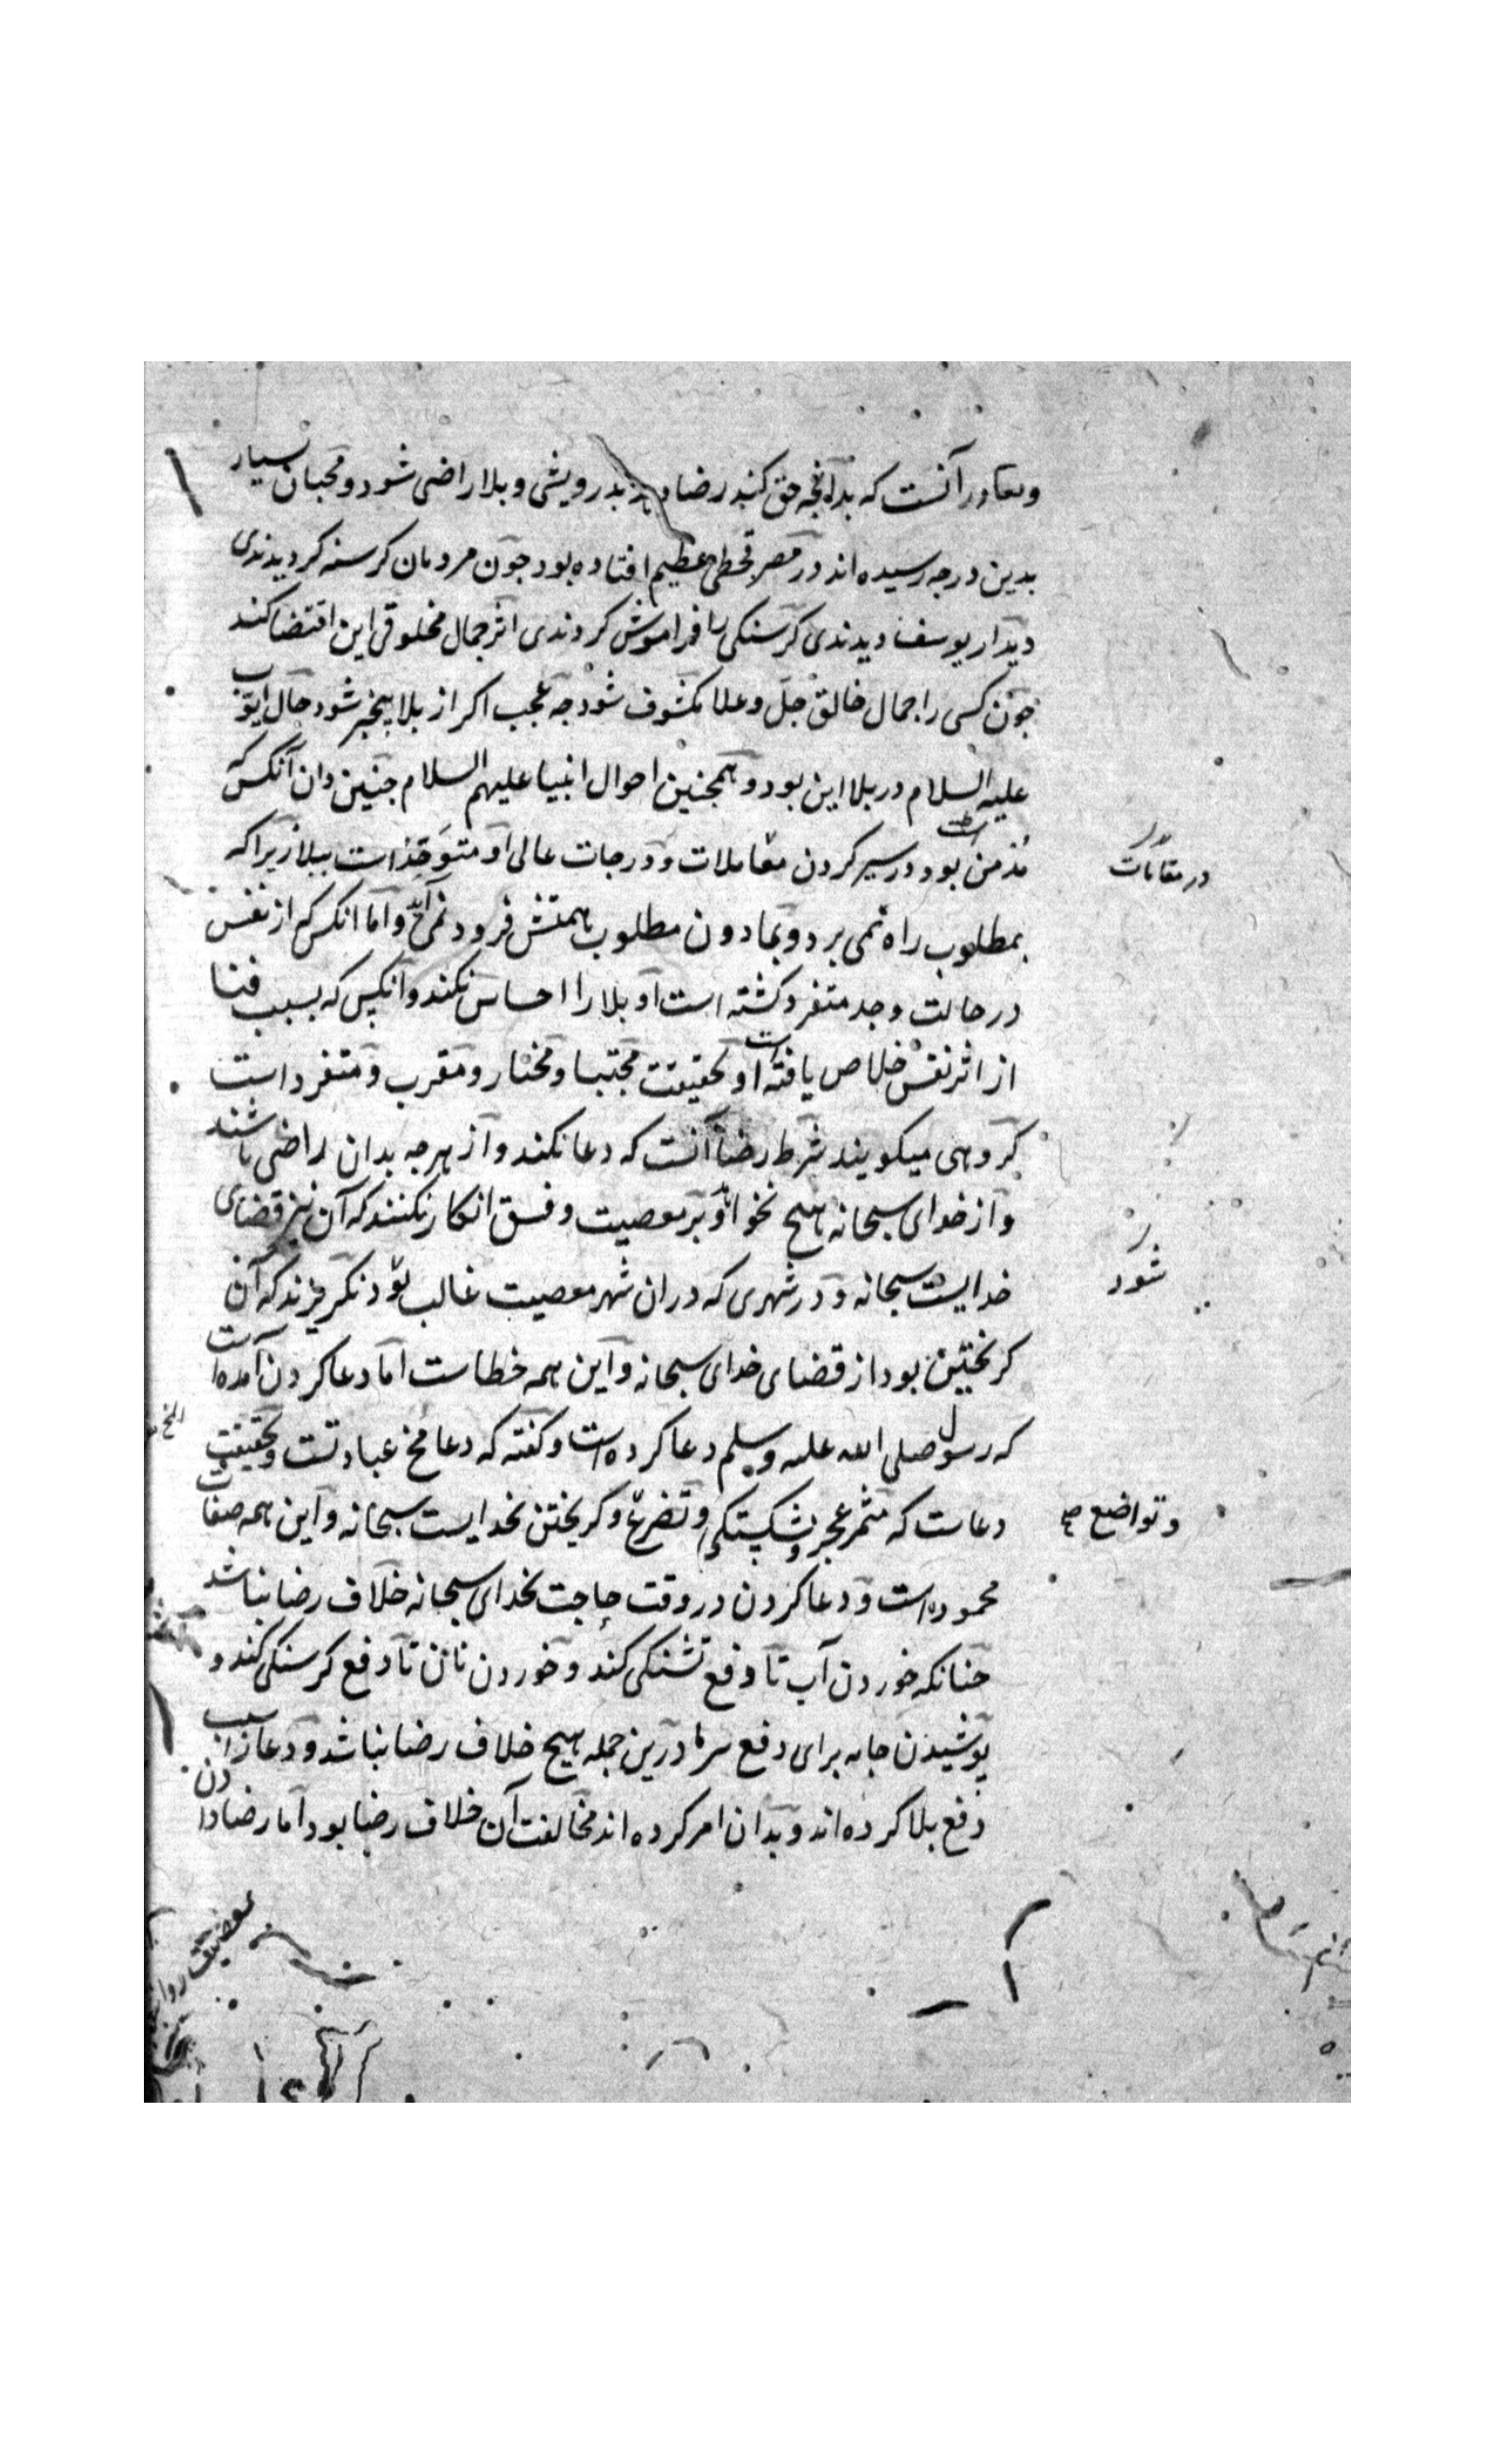 آنست که بدانچه حق کند رضا دهد بدرویشی و بلا راضی شود و محبان بسیار
بدین درجه رسیده اند در مصر قحطی عظیم افتاده بود چون مردمان کرسنه کردیدندی
دیدار یوسف دیدندی کرسنکی را فراموش کردندی اثر جمال مخلوقی این اقتضا کند
چون کسی را جمال خالق جل و علا مکشوف شود چه عجب اکر از بلا بیخبر شود حال ایوب
علیه السلام در بلا این بود و همچنین احوال انبیا علیهم السلام چنین دان آنکس که
بود در سیر کردن معاملات و درجات عالی او ببلا زیرا که
در مقامات
بمطلوب راه نمی برد و بمادون مطلوب همتش فرود نمی آید و اما انکس که از نفس
در حالت وجد متفرد کشته است او بلا را احساس نکند و آنکس که بسبب فنا
از اثر نفس خلاص یافته است او بحقیقت مجتبا و مختار و مقرب و متفرد است
کروهی میکویند شرط رضا آنست که دعا نکند و از هرچه بدان راضی باشند
و از خدای سبحانه هیچ نخواهد و بر معصیت و فسق انکار نکنند که آن نیز قضای
خدایست سبحانه و در شهری که دران شهر معصیت غالب بود نکریزند که آن
شود
کریختن بود از قضای خدای سبحانه و این همه خطاست اما دعا کردن آمده است
که رسول صلی الله علیه وسلم دعا کرده است و کفته که دعا مخ عبادتست و بحقیقت
دعاست که مثمر عجز و شکستکی و تضرع و کریختن بخدایست سبحانه و این همه صفات
و تواضع صح
محموده است و دعا کردن در وقت حاجت بخدای سبحانه خلاف رضا نباشد
چنانکه خوردن آب تا دفع تشنکی کند و خوردن نان تا دفع کرسنکی کند و
پوشیدن جامه برای دفع سرما درین جمله هیچ خلاف رضا نباشد و دعا را سبب
دفع بلا کرده اند و بدان امر کرده اند مخالفت آن خلاف رضا بود اما رضا دادن